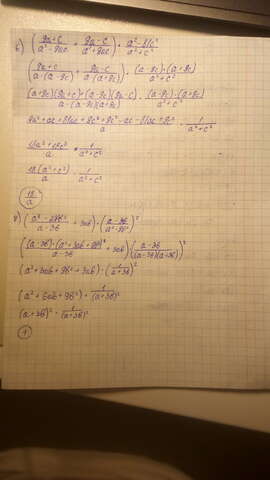 б) (9a+c/a²-9ac + 9a-c/a²+9ac) · a²-81c²/a²+c²
(9a+c/a·(a-9c) + 9a-c/a·(a+9c)) · (a-9c)·(a+9c)/a²+c²
(a+9c)(9a+c)+(a-9c)(9a-c)/a·(a-9c)(a+9c) · (a-9c)·(a+9c)/a²+c²
9a²+ac+81ac+9c²+9a²-ac-81ac+9c²/a · 1/a²+c²
18a²+18c²/a · 1/a²+c²
18(a²+c²)/a · 1/a²+c²
18/a
(a³-27b³/a-3b + 3ab) · (a-3b/a²-9b²)²
((a-3b)·(a²+3ab+9b²)/a-3b + 3ab) · (a-3b/(a-3b)(a+3b))²
(a²+3ab+9b²+3ab) · (1/a+3b)²
(a²+6ab+9b²) · 1/(a+3b)²
(a+3b)² · 1/(a+3b)²
1